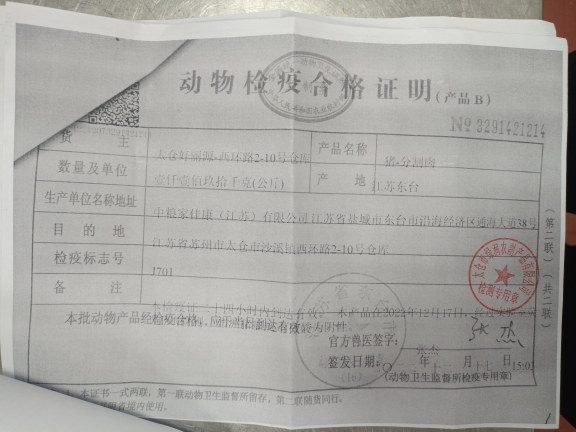 动物检疫合格证明(产品B)
№ 3291421214
货 主 太仓轩丽源·西环路2-10号仓库 产品名称 猪·分割肉
数量及单位 壹仟壹佰玖拾千克(公斤) 产 地 江苏东台
生产单位名称地址 中粮家佳康（江苏）有限公司江苏省盐城市东台市沿海经济区通海大道38号
目 的 地 江苏省苏州市太仓市沙溪镇西环路2-10号仓库
检疫标志号 J701
备 注
本检疫证二十四小时内到达有效。本产品在2022年12月17日
本批动物产品经检疫合格，应于当日到达有效
较为阴性。
官方兽医签字： 张杰
张杰
签发日期： 年 十二月 十七日 15:03
(动物卫生监督所检疫专用章)
本证书一式两联，第一联动物卫生监督所留存，第二联随货同行。
境内使用。
（第二联）（共二联）
检测专用章